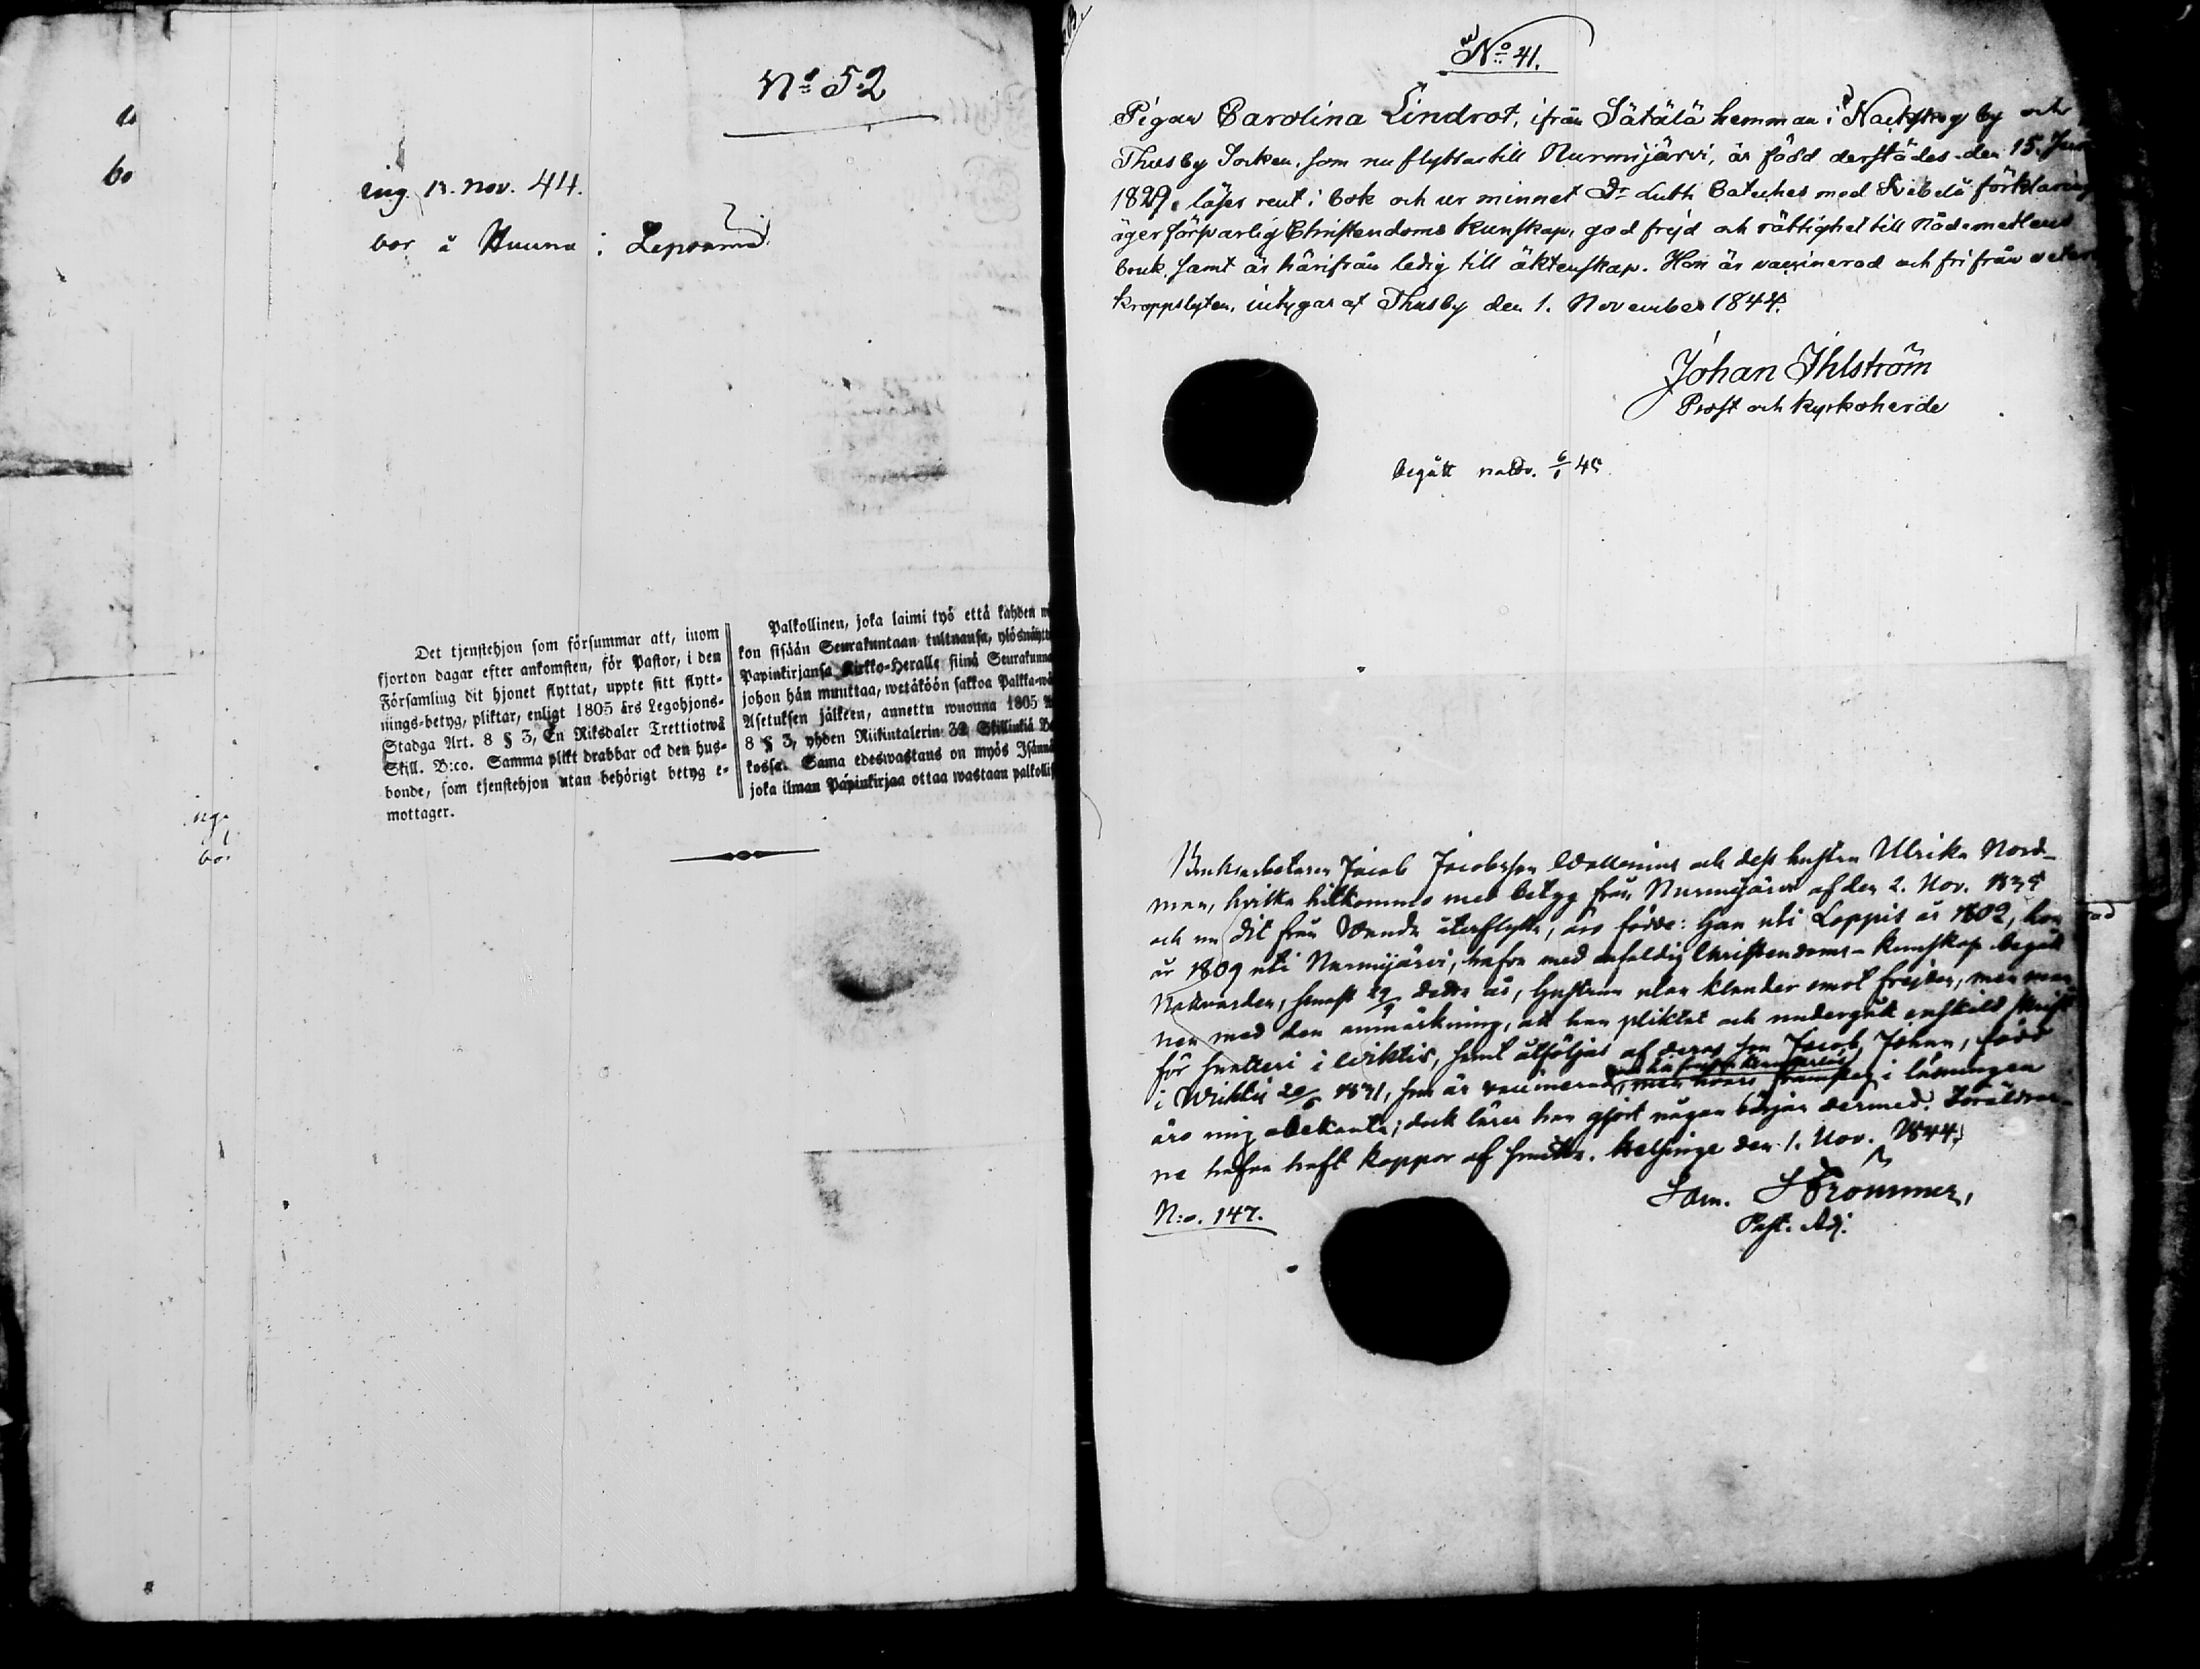 No 52
ing. 13. Nov. 44.
bor å i Lepsämä
Det tjenstehjon som försummar att, inom
fjorton dagar efter ankomsten, för Pastor, i den
Församling dit hjonet flyttat, uppte sitt flytt-
nings-betyg, pliktar, enligt 1805 års Legohjons-
Stadga Art. 8 § 3, En Riksdaler Trettiotwå
Skill. B:co. Samma plikt drabbar ock den hus-
bonde, som tjenstehjon utan behörigt betyg e-
mottager.
Palkollinen, joka laimi lyö että kahden
kon sisään Seurakuntaan tultuansa, ylösnäyttä
Papinkirjansa Kirkko-Heralle siinä Seurakunna
johon hän muuttaa, wetäköön sakkoa Palkka-wä
Asetuksen jälkeen, annettu wuonna 1805
8 § 3, yhden Riikintalerin 32 Skillinkiä B
kossa. Sama edeswastaus on myös Isännä
joka ilman Papinkirjaa ottaa wastaan palkollis
No 41.
Pigan Carolina Lindrot, ifrån Sätälä hemman i by och
Thusby Socken, som nu flyttar till Nurmijärvi, är född derstädes den 15. Jun
1829, läser rent i bok och ur minnet Dr Luth Cateches med Svebelii förklaring
äger försvarlig Christendoms kunskap, god frejd och rättighet till Nådemedlens
bruk, samt är härifrån ledig till äktenskap. Hon är vaccinerad och fri från
kroppslyten, intygar af Thusby den 1. November 1844.
Johan Ihlström
Prost och Kyrkoherde
begått nattv. 6/1 45
Bruksarbetaren Jacob Jacobsson och dess hustru Ulrika Nord-
man, hvilka hitkommo med betyg från Nurmijärvi af den 2. Nov. 1835
och nu dit från Wanda återflytta, äro födde: Han uti Loppis år 1802, hon
år 1809 uti Nurmijärvi, hafva med enfaldig Christendoms-kunskap begått
Nattvarden, senast 29/9 detta år, hustrun utan klander emot frejden, men man-
nen med den anmärkning, att han pliktat och undergått enskild skrift
för snatteri i Wiktis, samt åtföljas af deras son Jacob Johan, född
i Wichtis 20/6 1831, som är vaccinerad, men hvars framsteg i läsningen
äro mig obekanta; dock lärer han gjort någon början dermed. Föräldrar-
ne hafva haft koppor af smitta. Helsinge den 1. Nov. 1844.
Sam. Strömmer,
Past. Adj.
N:o. 147.